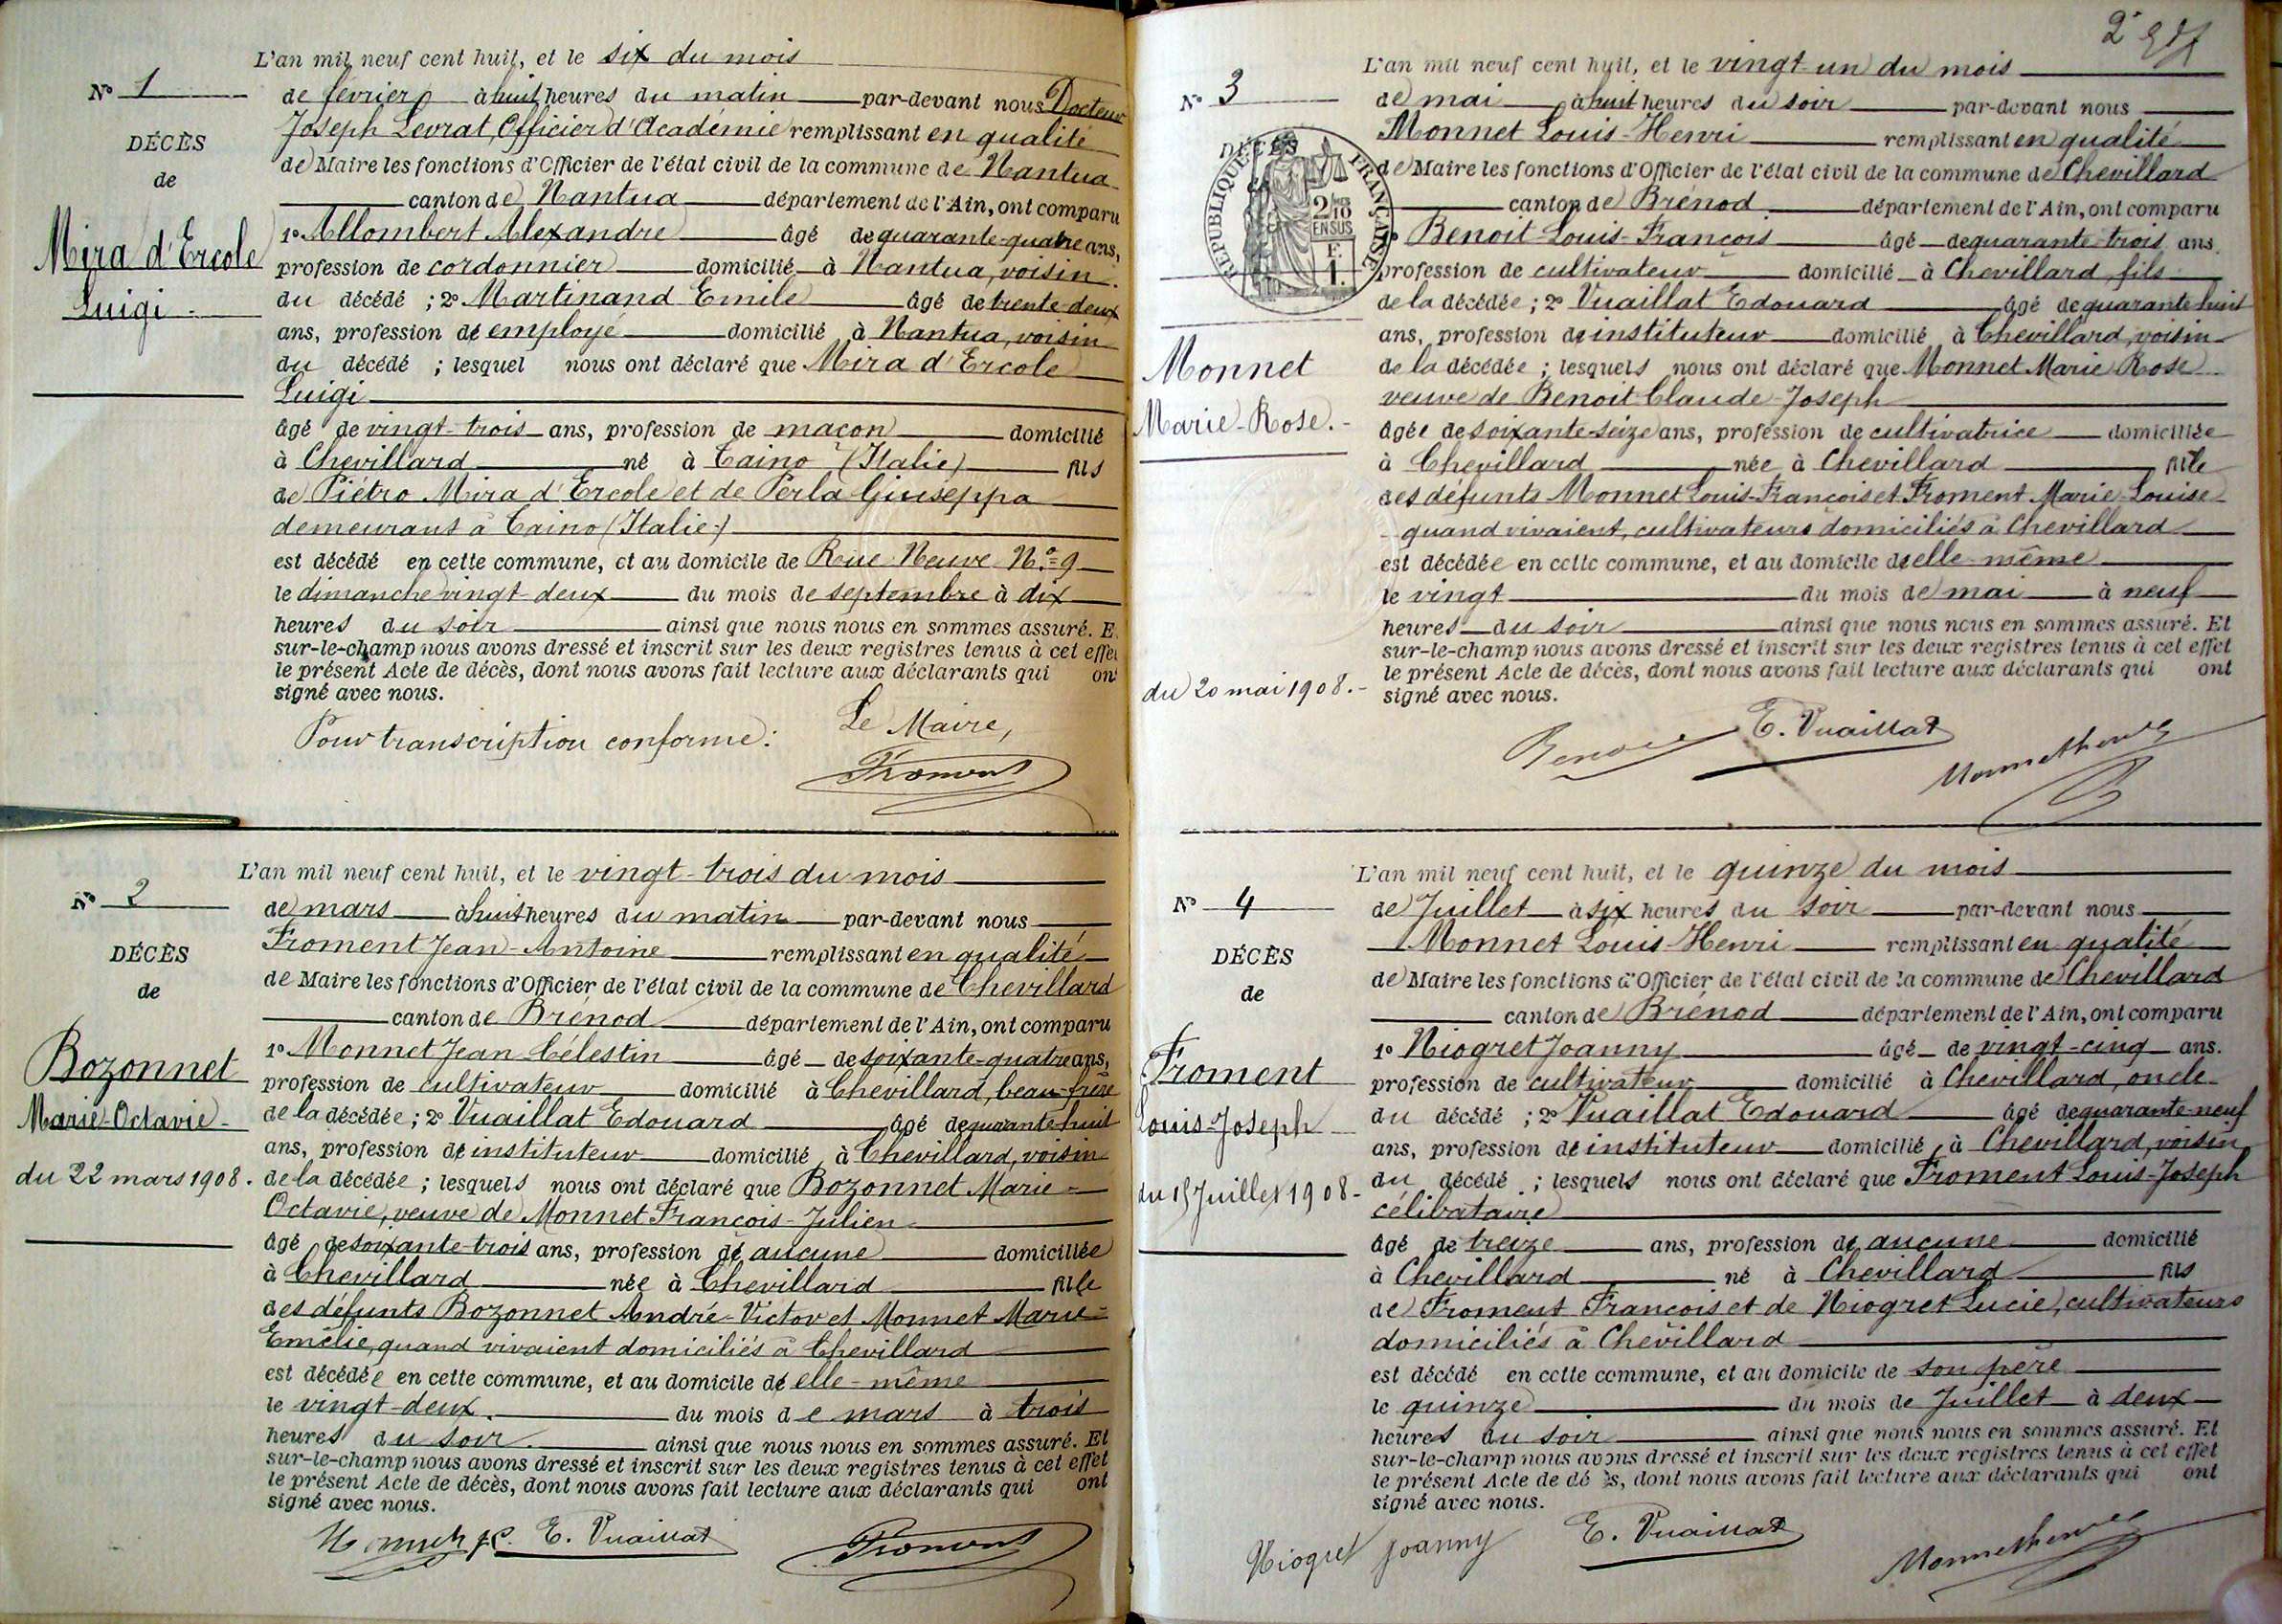 L'an mil neuf cent huit, et le six du mois
N° 1
de février à huit heures du matin par-devant nous Docteur
Joseph Levrat, Officier d'Académie remplissant en qualité
DÉCÈS
de Maire les fonctions d'Officier de l'état civil de la commune de Nantua
de
canton de Nantua département de l'Ain, ont comparu
1° Allombert Alexandre âgé de quarante-quatre ans,
Mira d'Ercole
profession de cordonnier domicilié à Nantua, voisin
du décédé ; 2° Martinand Emile âgé de trente-deux
Luigi
ans, profession de employé domicilié à Nantua, voisin
du décédé ; lesquel nous ont déclaré que Mira d'Ercole
Luigi
âgé de vingt-trois ans, profession de maçon domicilié
à Chevillard né à Taino (Italie) fils
de Piétro Mira d'Ercole et de Perla Giuseppa
demeurant à Taino (Italie)
est décédé en cette commune, et au domicile de Rue Neuve N° 9
le dimanche vingt-deux du mois de septembre à dix
heures du soir ainsi que nous nous en sommes assuré. E
sur-le-champ nous avons dressé et inscrit sur les deux registres tenus à cet effet
le présent Acte de décès, dont nous avons fait lecture aux déclarants qui ont
signé avec nous.
Pour transcription conforme :
Le Maire,
Froment
L'an mil neuf cent huit, et le vingt-trois du mois
N° 2
de mars à huit heures du matin par-devant nous
Froment Jean-Antoine remplissant en qualité
DÉCÈS
de Maire les fonctions d'Officier de l'état civil de la commune de Chevillard
de
canton de Brénod département de l'Ain, ont comparu
1° Monnet Jean Célestin âgé de soixante-quatre ans,
Bozonnet
profession de cultivateur domicilié à Chevillard, beau-frère
Marie-Octavie
de la décédée ; 2° Vuaillat Edouard âgé de quarante-huit
ans, profession de instituteur domicilié à Chevillard, voisin
du 22 mars 1908.
de la décédée ; lesquels nous ont déclaré que Bozonnet Marie-
Octavie, veuve de Monnet François-Julien
âgé de soixante-trois ans, profession de aucune domiciliée
à Chevillard née à Chevillard fille
des défunts Bozonnet André-Victor et Monnet Marie-
Emélie, quand vivaient domiciliés à Chevillard
est décédée en cette commune, et au domicile de elle-même
le vingt-deux du mois de mars à trois
heures du soir ainsi que nous nous en sommes assuré. Et
sur-le-champ nous avons dressé et inscrit sur les deux registres tenus à cet effet
le présent Acte de décès, dont nous avons fait lecture aux déclarants qui ont
signé avec nous.
E. Vuaillat
Froment
2e
L'an mil neuf cent huit, et le vingt-un du mois
N° 3
de mai à huit heures du soir par-devant nous
Monnet Louis-Henri remplissant en qualité
DÉCÈS
RÉPUBLIQUE FRANÇAISE
2/10 EN SUS
F. 1.
de Maire les fonctions d'Officier de l'état civil de la commune de Chevillard
canton de Brénod département de l'Ain, ont comparu
1° Benoit Louis-François âgé de quarante-trois ans,
profession de cultivateur domicilié à Chevillard, fils
de la décédée ; 2° Vuaillat Edouard âgé de quarante-huit
ans, profession de instituteur domicilié à Chevillard, voisin
Monnet
de la décédée ; lesquels nous ont déclaré que Monnet Marie Rose
veuve de Benoit Claude-Joseph
Marie-Rose.
âgée de soixante-seize ans, profession de cultivatrice domiciliée
à Chevillard née à Chevillard fille
des défunts Monnet Louis-François et Froment Marie-Louise
quand vivaient, cultivateurs domiciliés à Chevillard
est décédée en cette commune, et au domicile de elle-même
le vingt du mois de mai à neuf
heures du soir ainsi que nous nous en sommes assuré. Et
sur-le-champ nous avons dressé et inscrit sur les deux registres tenus à cet effet
le présent Acte de décès, dont nous avons fait lecture aux déclarants qui ont
du 20 mai 1908.
signé avec nous.
Benoit
E. Vuaillat
Monnet henri
L'an mil neuf cent huit, et le quinze du mois
N° 4
de Juillet à six heures du soir par-devant nous
Monnet Louis-Henri remplissant en qualité
DÉCÈS
de Maire les fonctions d'Officier de l'état civil de la commune de Chevillard
de
canton de Brénod département de l'Ain, ont comparu
1° Niogret Joanny âgé de vingt-cinq ans.
Froment
profession de cultivateur domicilié à Chevillard, oncle
Louis-Joseph
du décédé ; 2° Vuaillat Edouard âgé de quarante-neuf
ans, profession de instituteur domicilié à Chevillard, voisin
du 15 Juillet 1908
du décédé ; lesquels nous ont déclaré que Froment Louis-Joseph
célibataire
âgé de treize ans, profession de aucune domicilié
à Chevillard né à Chevillard fils
de Froment François et de Niogret Lucie, cultivateurs
domiciliés à Chevillard
est décédé en cette commune, et au domicile de son père
le quinze du mois de Juillet à deux
heures du soir ainsi que nous nous en sommes assuré. Et
sur-le-champ nous avons dressé et inscrit sur les deux registres tenus à cet effet
le présent Acte de dé ès, dont nous avons fait lecture aux déclarants qui ont
signé avec nous.
Niogret Joanny
E. Vuaillat
Monnet henri